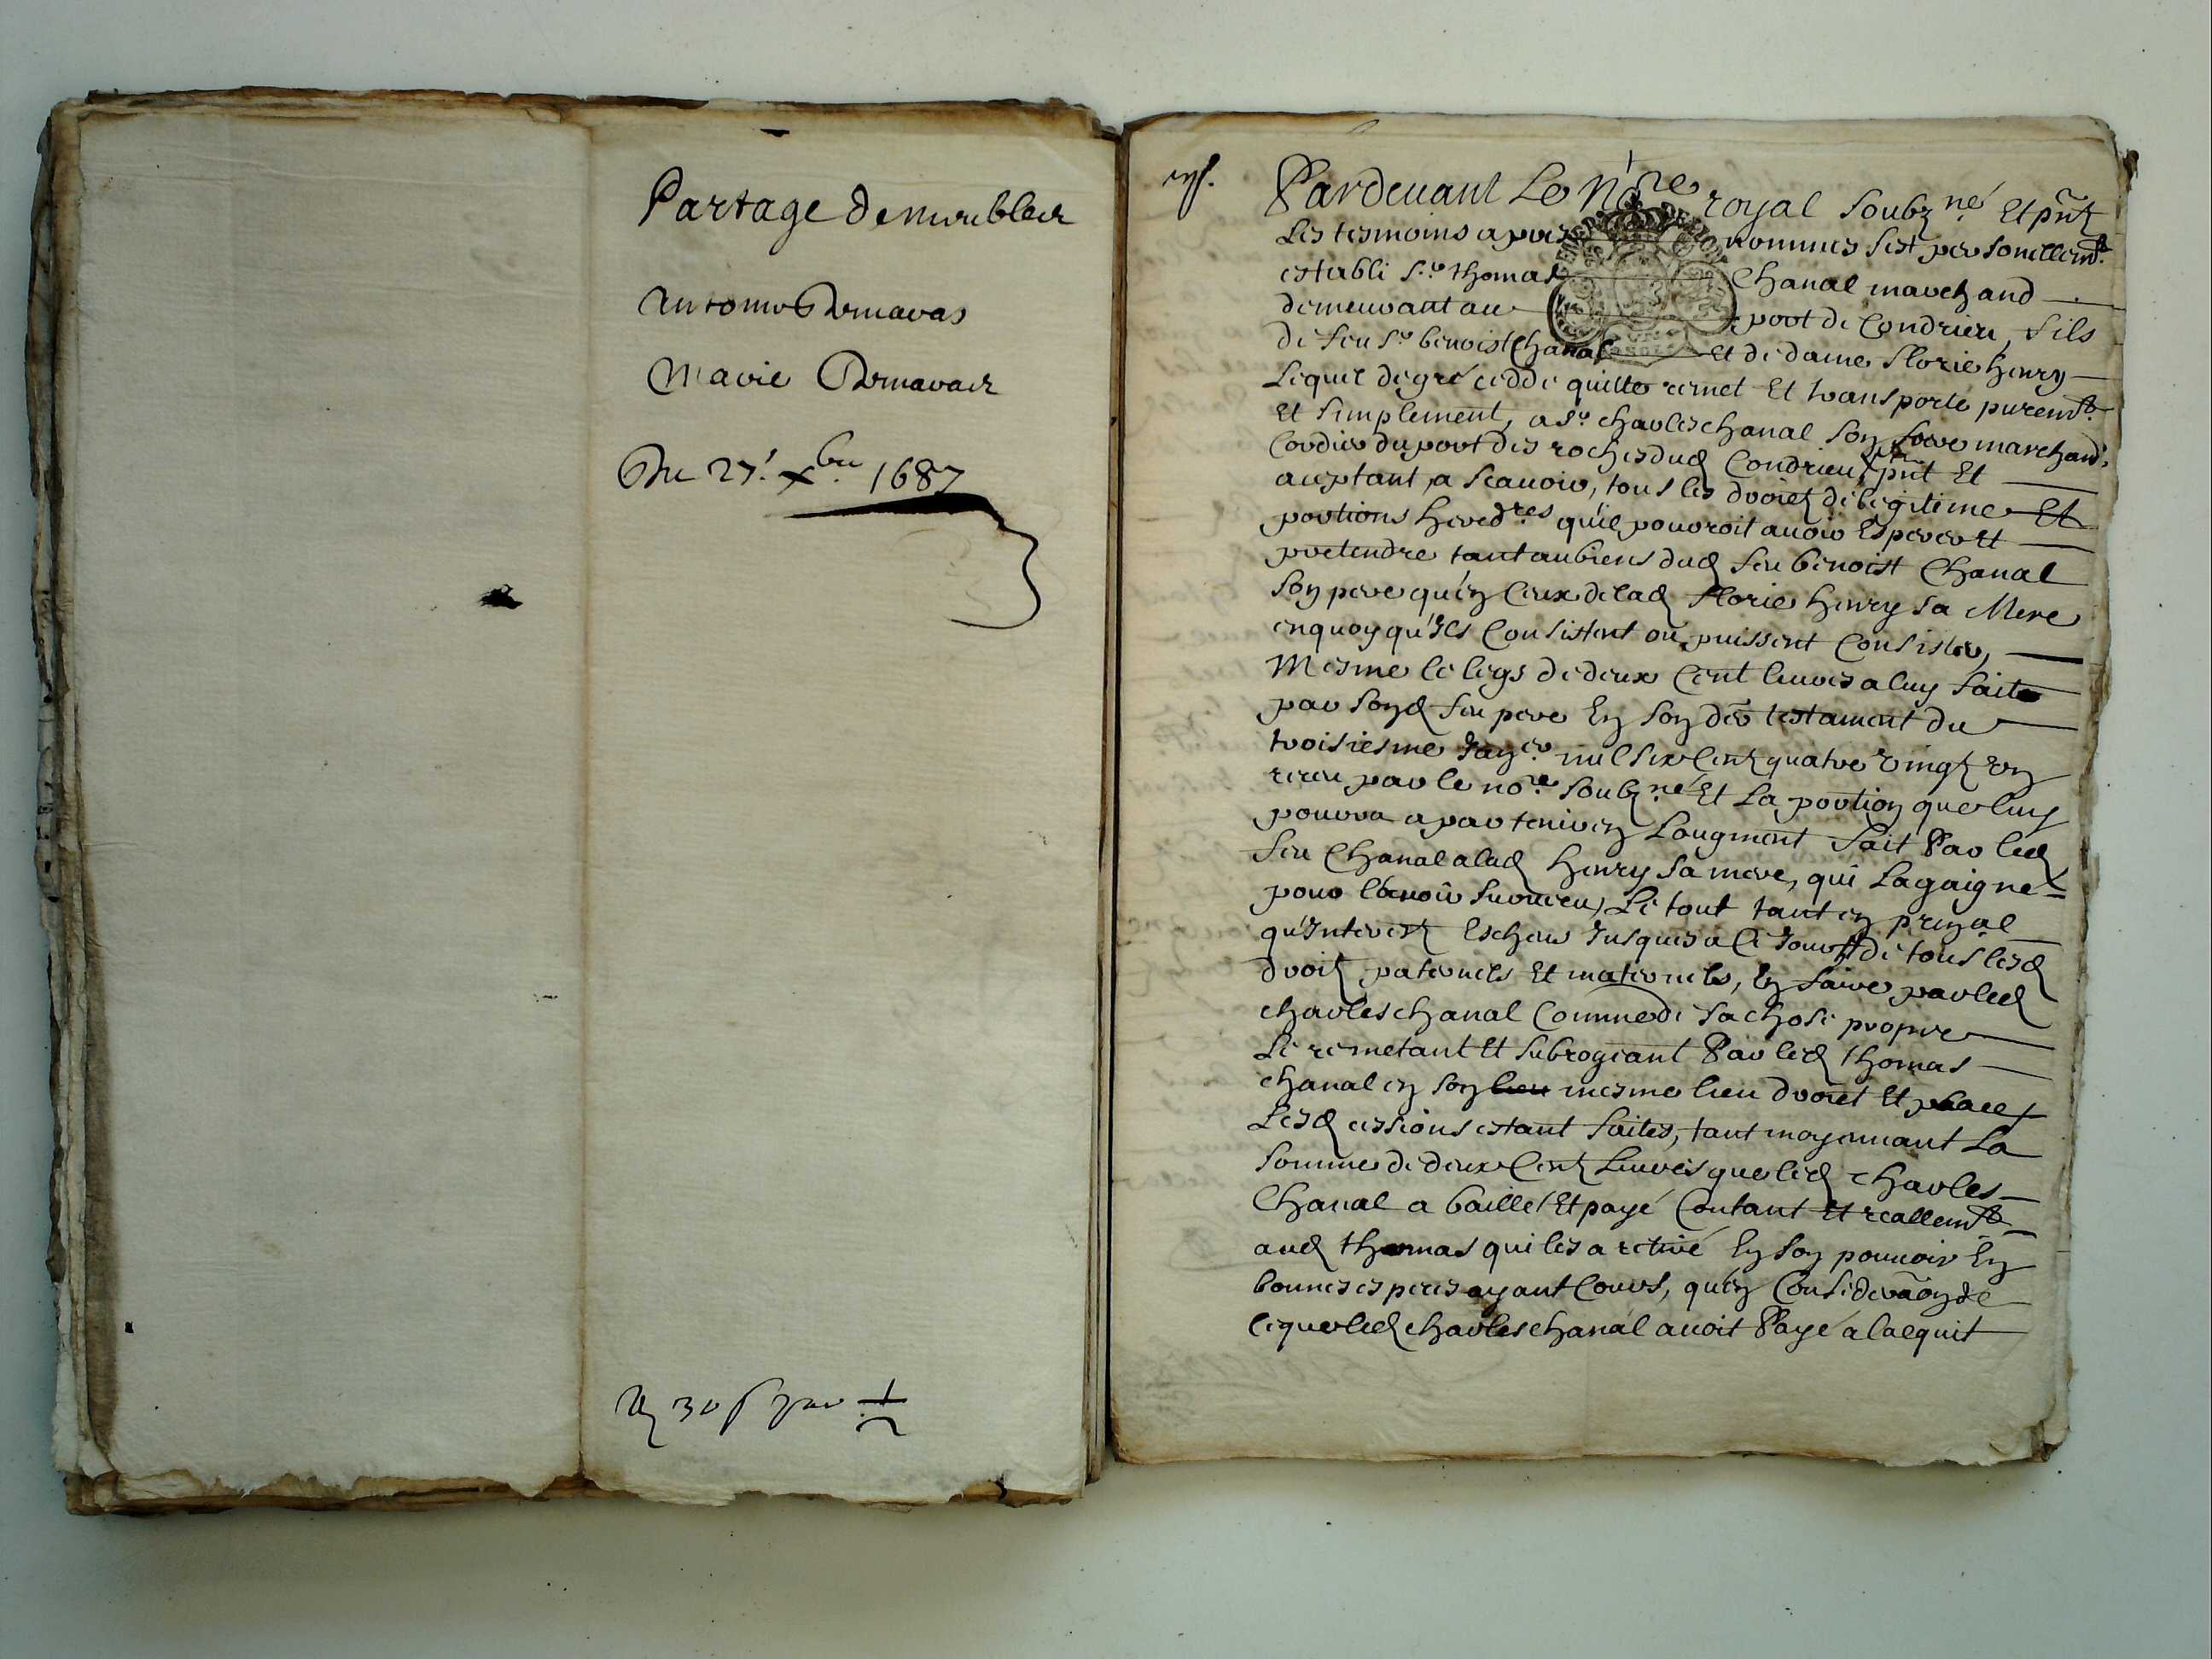 Partage de meubles
Du 27.e xbre 1687
Pardeuant Le Nore royal soubzné Et pñt
Les tesmoins apres nommes sest personellemt
establi sr thomas Chanal marchand
demeurant au port de Condrieu, fils
de feu sr benoist Chanal et de dame florie henry
Lequel de gré cedde quitte remet Et transporte puremt
Et simplement, a sr charles chanal son frere marchand
Cordier du port des roches dud Condrieu pñt Et
aceptant, a scauoir, tous les droietz de legitime Et
portions heredres qu'il pouroit auoir Esperer Et
pretendre tant au biens dud feu benoist Chanal
son pere qu'en Ceux de lad florie henry sa Mere
en quoy qu'Ils Consistent ou puissent Consister,
Mesme le legs de deux Cent liures a luy fait
par sond feu pere En son der testament du
troisiesme Janer mil six Centz quatre vingtz vn
receu par le nore soubzné Et La portion que luy
pourra apartenir en Laugment fait Par led
feu Chanal a lad henry sa mere, qui La gaigné
pour l'auoir suruecu, Le tout tant en prinal
qu'Interestz Escheus Jusques a Ce Jour de tous lesd
droitz paternels Et maternels, En faire par led
charles chanal Comme de sa chose propre
Le remetant Et subrogeant Par led thomas
chanal en son lieu mesme lieu droiet Et place
Lesd cessions estant faites, tant moyennant La
somme de deux Centz Liures que led Charles
Chanal a baillé Et payé Contant Et reallemt
aud thomas qui les a retiré En son pouuoir En
bonnes especes ayant Cours, qu'en Consideraõn de
ce que led charles chanal auoit Payé a lacquit